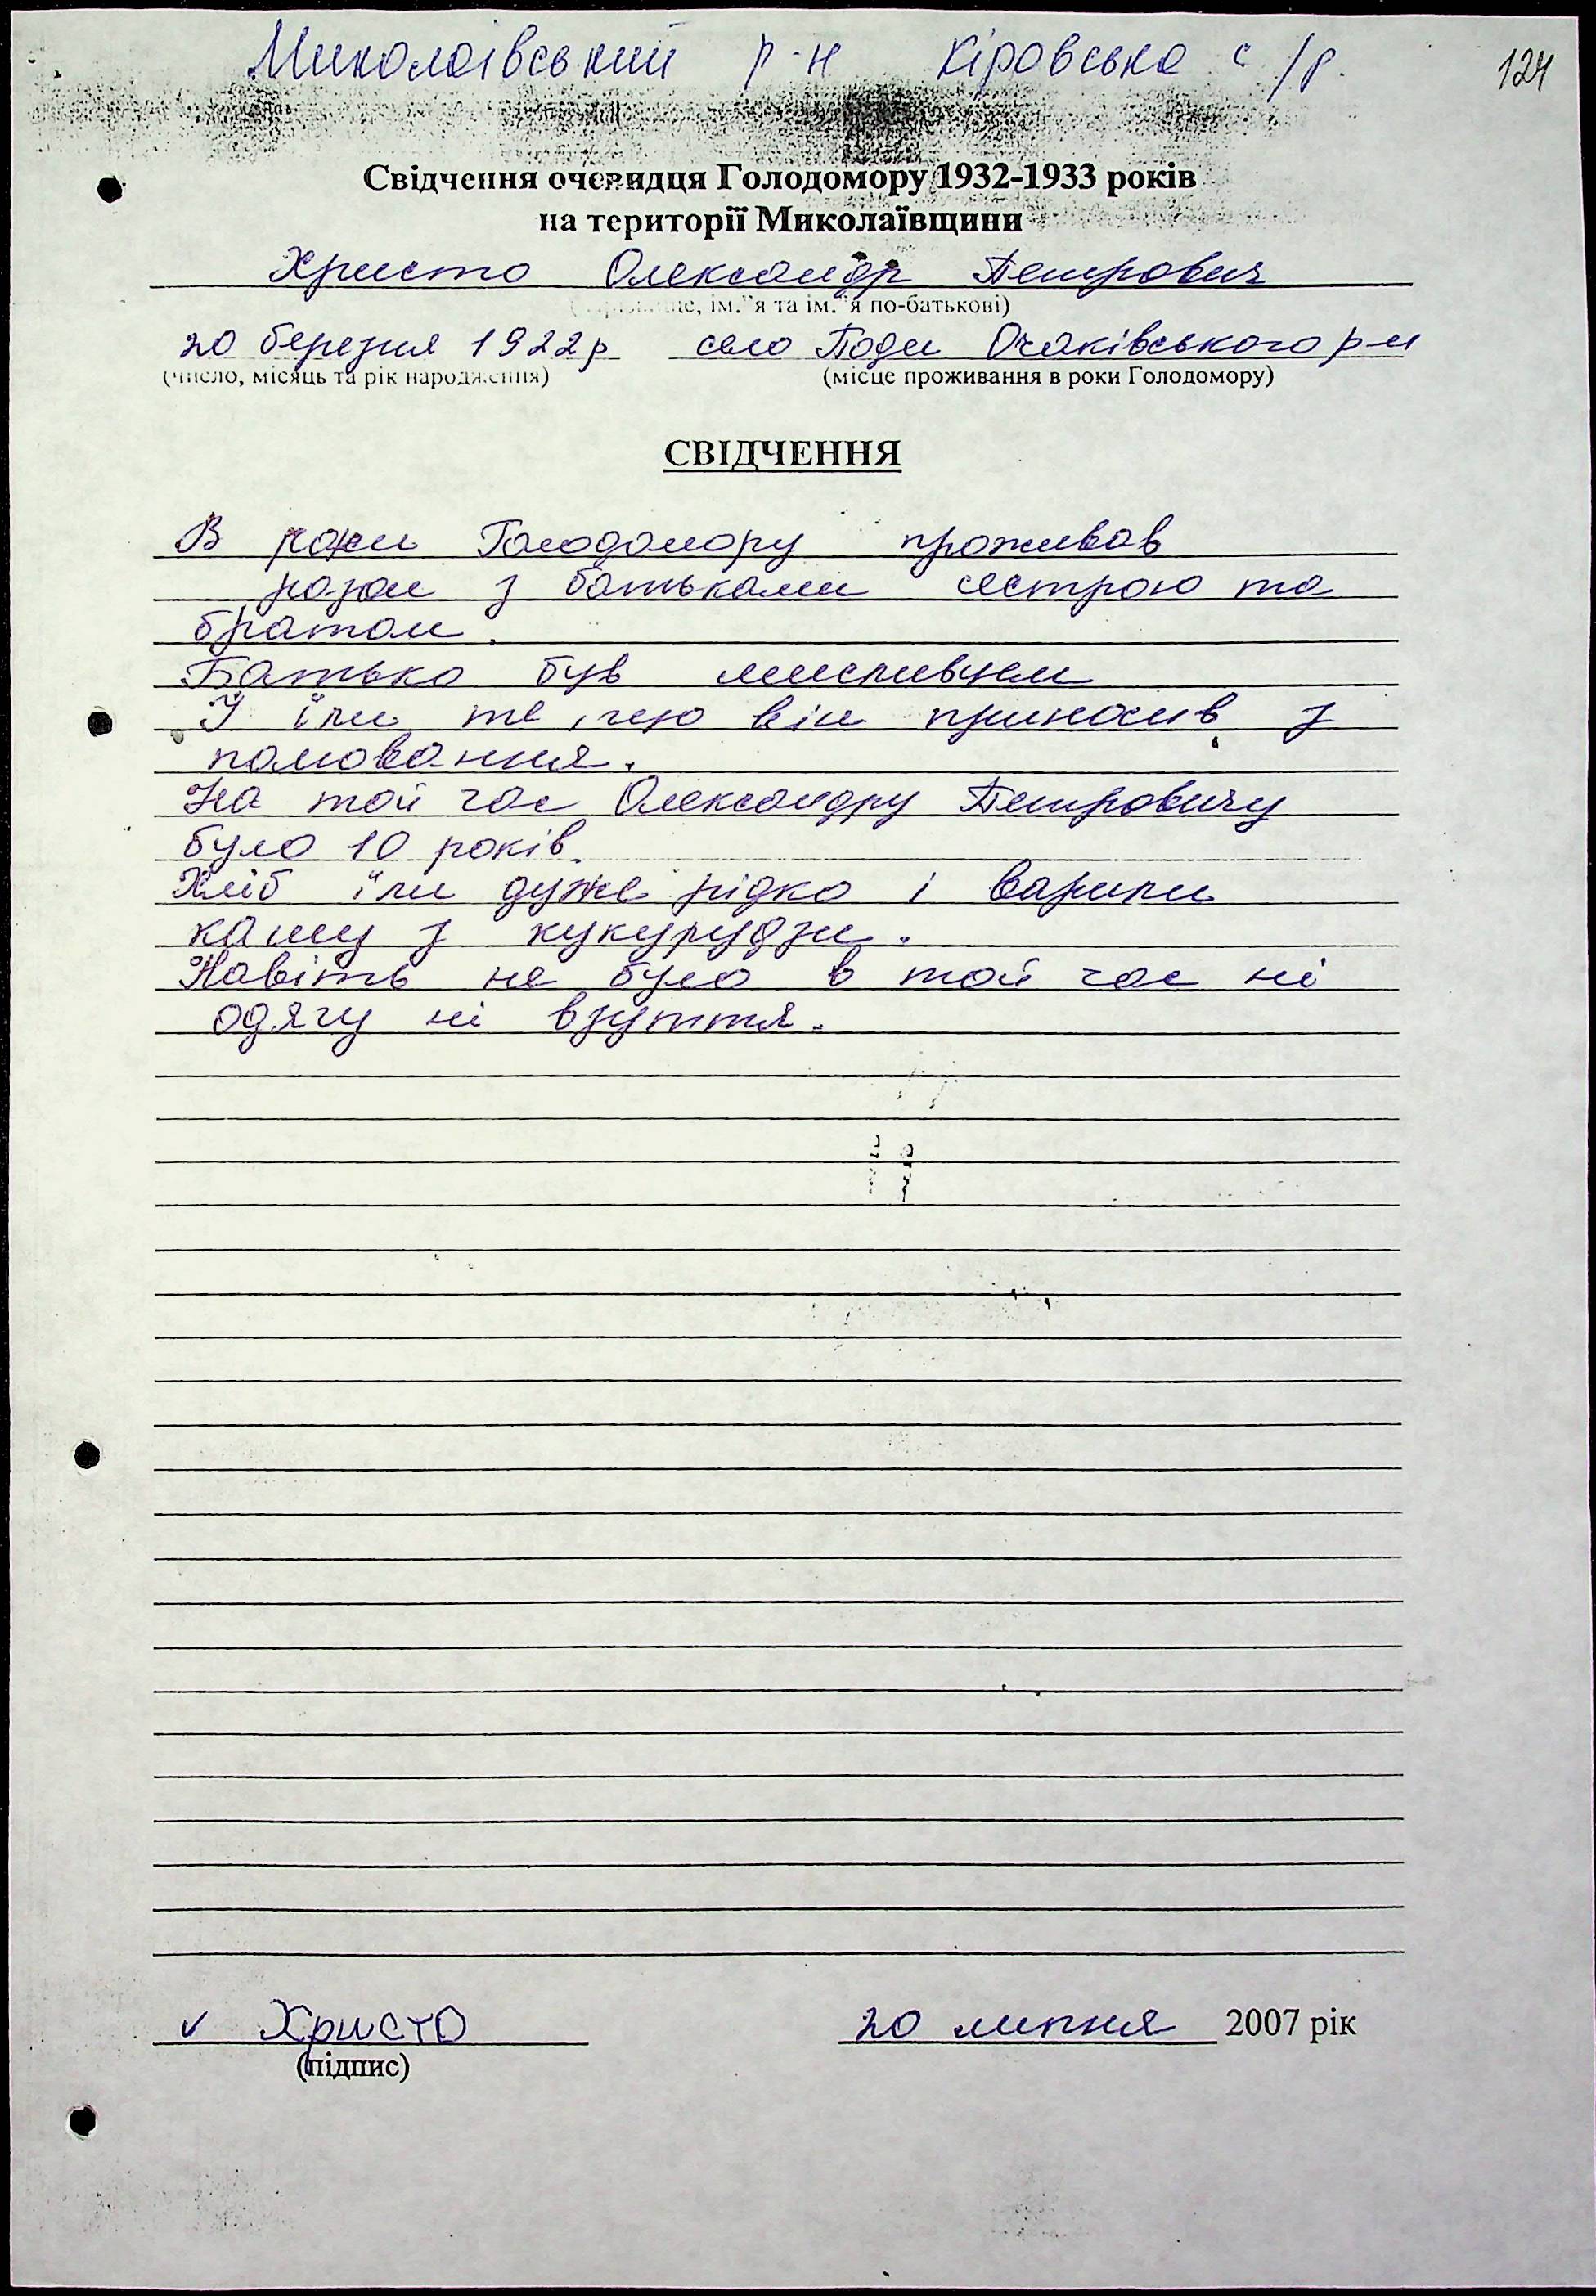 Миколаївський р-н Кіровська с/р.
124
Свідчення очевидця Голодомору 1932-1933 років
на території Миколаївщини
Христо Олександр Петрович
(прізвище, ім."я та ім."я по-батькові)
20 березня 1922р село Поди Очаківського р-н
(число, місяць та рік народження) (місце проживання в роки Голодомору)
СВІДЧЕННЯ
В роки Голодомору проживав
разом з батьками сестрою та
братом.
Батько був мисливцем
Ї їли те, що він приносив з
полювання.
На той час Олександру Петровичу
було 10 років.
Хліб їли дуже рідко і варили
кашу з кукурудзи.
Навіть не було в той час ні
одягу ні взуття.
v Христо 20 липня 2007 рік
(підпис)